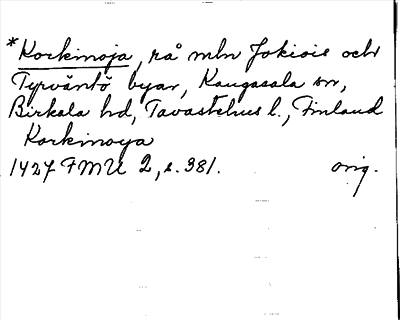 *Korkinoja, rå mln Jokiois och
Tyrväntö byar, Kangasala sn,
Birkala hd, Tavastehus l., Finland
Korkinoya
1427 FMU 2, s. 381. orig.